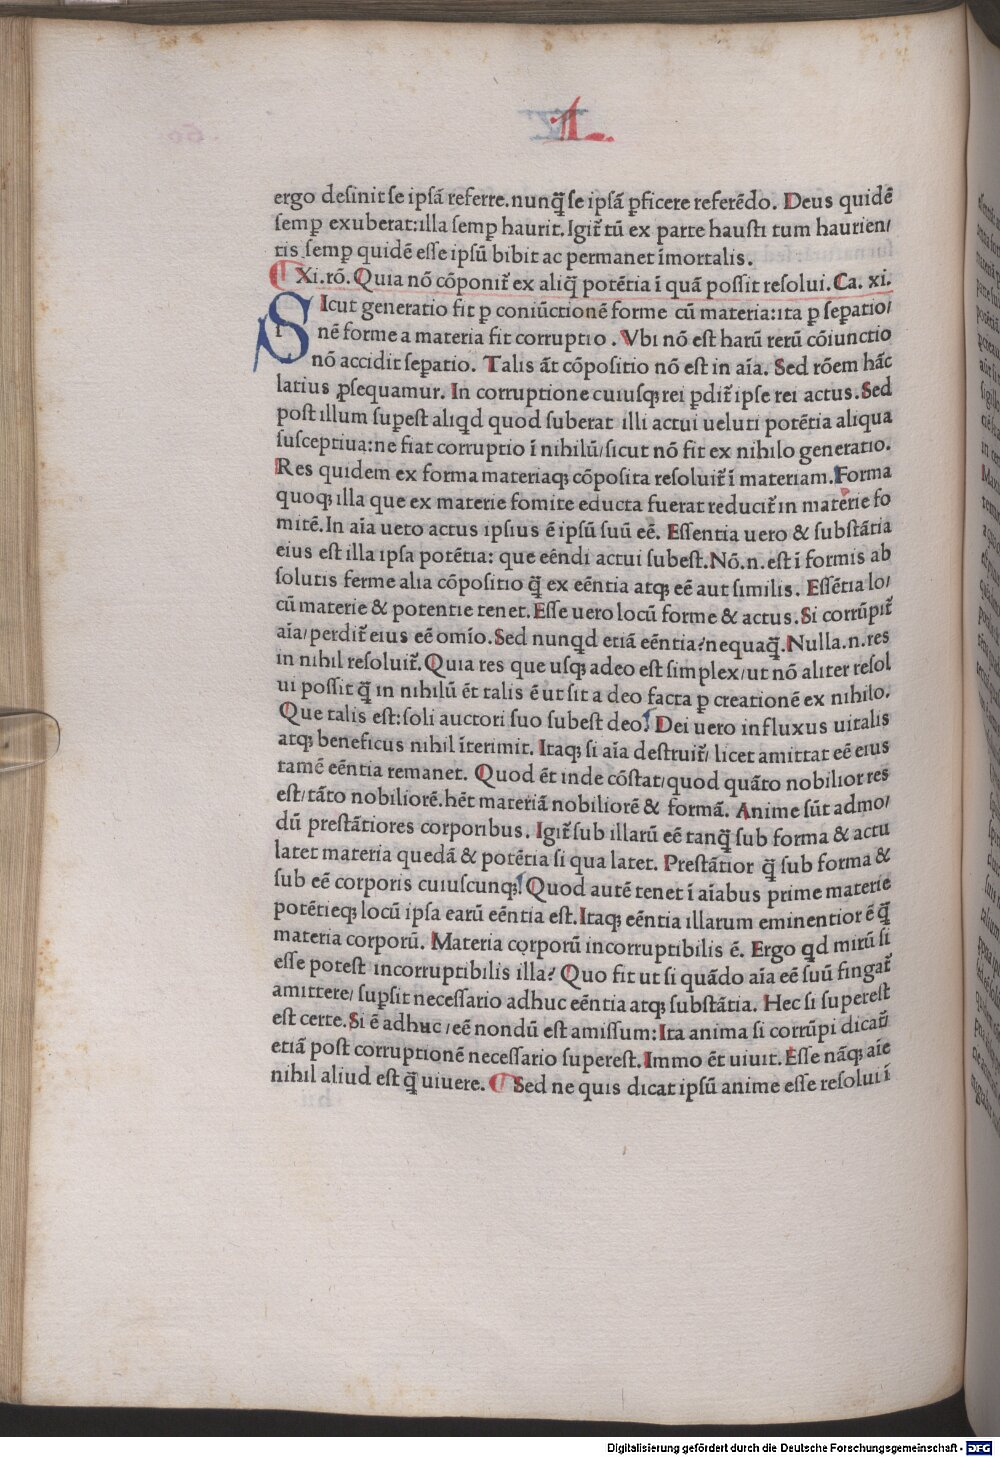 L
ergo desinit se ipsā referre. nunq̄ se ipsā ꝑficere referēdo. Deus quidē
semꝑ exuberat: illa semꝑ haurit. Igit̄ tū ex parte hausti tum haurien/
tis semꝑ quidē esse ipsū bibit ac permanet īmortalis.
¶ Xi. rō. Quia nō cōponit̄ ex aliq̄ potētia ī quā possit resolui. Ca. xi.
SIcut generatio fit ꝑ coniūctionē forme cū materia: ita ꝑ seꝑatio/
nē forme a materia fit corruptio. Vbi nō est harū rerū cōiunctio
nō accidit seꝑatio. Talis āt cōpositio nō est in aīa. Sed rōem hāc
latius ꝓsequamur. In corruptione cuiusqꝫ rei ꝑdit̄ ipse rei actus. Sed
post illum suꝑest aliqd quod suberat illi actui ueluti potētia aliqua
susceptiua: ne fiat corruptio ī nihilū/ sicut nō fit ex nihilo generatio.
Res quidem ex forma materiaqꝫ cōposita resoluit̄ ī materiam. Forma
quoqꝫ illa que ex materie fomite educta fuerat reducit̄ in materie fo
mitē. In aīa uero actus ipsius ē ipsū suū eē. Essentia uero & substātia
eius est illa ipsa potētia: que eēndi actui subest. Nō. n. est ī formis ab
solutis ferme alia cōpositio q̄ ex eēntia atqꝫ eē aut similis. Essētia lo/
cū materie & potentie tenet. Esse uero locū forme & actus. Si corrūpit̄
aīa/ perdit̄ eius eē omīo. Sed nunqd etiā eēntia? nequaq̄. Nulla. n. res
in nihil resoluit̄. Quia res que usqꝫ adeo est simplex/ ut nō aliter resol
ui possit q̄ in nihilū ēt talis ē ut sit a deo facta ꝑ creationē ex nihilo.
Que talis est: soli auctori suo subest deo. Dei uero influxus uitalis
atqꝫ beneficus nihil īterimit. Itaqꝫ si aīa destruit̄/ licet amittat eē eius
tamē eēntia remanet. Quod ēt inde cōstat/ quod quāto nobilior res
est/ tāto nobiliorē. hēt materiā nobiliorē & formā. Anime sūt admo/
dū prestātiores corporibus. Igit̄ sub illarū eē tanq̄ sub forma & actu
latet materia quedā & potētia si qua latet. Prestātior q̄ sub forma &
sub eē corporis cuiuscunqꝫ. Quod autē tenet ī aīabus prime materie
potētieqꝫ locū ipsa earū eēntia est. Itaqꝫ eēntia illarum eminentior ē q̄
materia corporū. Materia corporū incorruptibilis ē. Ergo qd mirū si
esse potest incorruptibilis illa? Quo fit ut si quādo aīa eē suū fingat̄
amittere/ suꝑsit necessario adhuc eēntia atqꝫ substātia. Hec si superest
est certe. Si ē adhuc/ eē nondū est amissum: Ita anima si corrūpi dicat̄
etiā post corruptionē necessario superest. Immo ēt uiuit. Esse nāqꝫ aīe
nihil aliud est q̄ uiuere. ¶ Sed ne quis dicat ipsū anime esse resolui ī
Digitalisierung gefördert durch die Deutsche Forschungsgemeinschaft - DFG